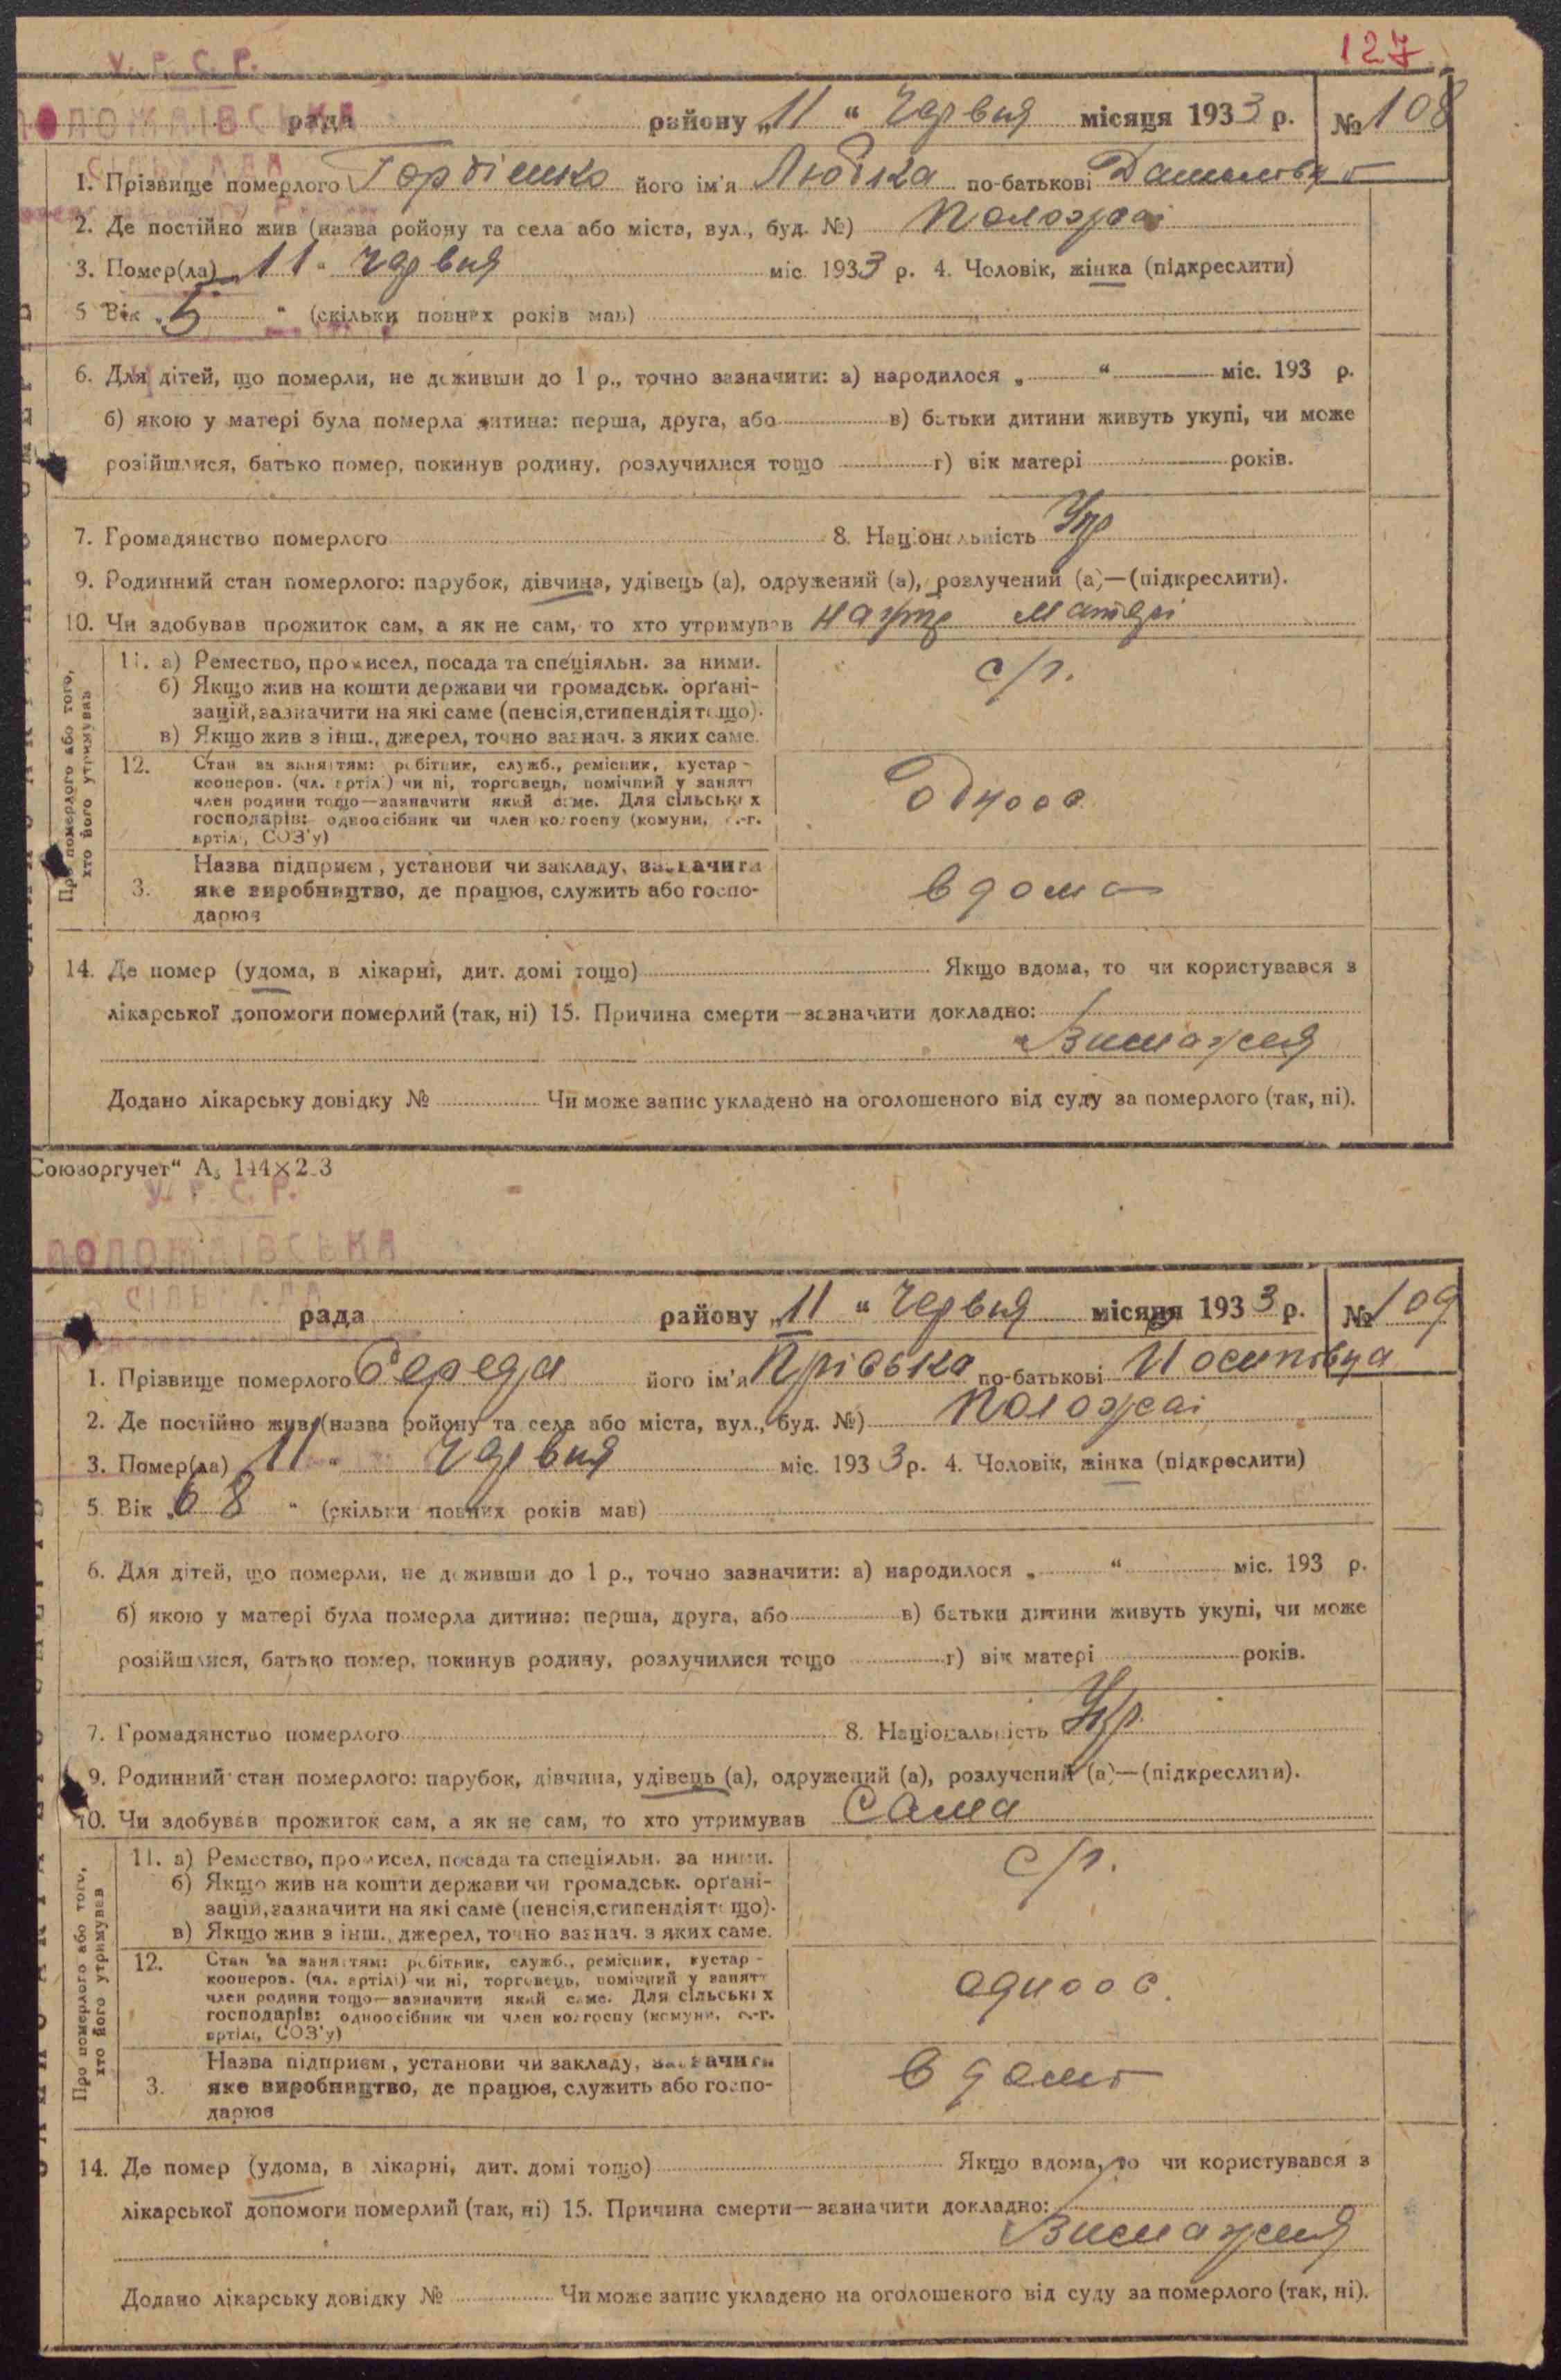 127
У. Р. С. Р.
ПОЛОЖАЇВСЬКА
рада району „11 “ Червня місяця 1933 р. № 108
СІЛЬРАДА
1. Прізвище померлого Гордієнко його ім'я Любка по-батькові Даниловна
2. Де постійно жив (назва ройону та села або міста, вул., буд. №) Положаї
3. Помер(ла) „11 “ червня міс. 1933 р. 4. Чоловік, жінка (підкреслити)
5 Вік „5 “ (скільки повних років мав)
6. Для дітей, що померли, не доживши до 1 р., точно зазначити: а) народилося „ “ міс. 193 р.
б) якою у матері була померла дитина: перша, друга, або в) батьки дитини живуть укупі, чи може
розійшлися, батько помер, покинув родину, розлучилися тощо г) вік матері років.
7. Громадянство померлого 8. Національність Укр
9. Родинний стан померлого: парубок, дівчина, удівець (а), одружений (а), розлучений (а)—(підкреслити).
10. Чи здобував прожиток сам, а як не сам, то хто утримував матері
Про померлого або того, хто його утримував
11. а) Ремество, промисел, посада та спеціяльн. за ними. с/г.
б) Якщо жив на кошти держави чи громадськ. орґані-
зацій, зазначити на які саме (пенсія, стипендія тощо).
в) Якщо жив з інш., джерел, точно зазнач. з яких саме.
12. Стан за заняттям: робітник, служб., ремісник, кустар -
кооперов. (чл. артілі) чи ні, торговець, помічний у занятт
член родини тощо—зазначити який саме. Для сільських
господарів: одноосібник чи член колгоспу (комуни, с.-г.
артілі, СОЗ'у)
Одноос
Назва підприєм, установи чи закладу, зазначити
3. яке виробництво, де працює, служить або госпо-
дарює
вдома
14. Де помер (удома, в лікарні, дит. домі тощо) Якщо вдома, то чи користувався з
лікарської допомоги померлий (так, ні) 15. Причина смерти—зазначити докладно:
Виснаження
Додано лікарську довідку № Чи може запис укладено на оголошеного від суду за померлого (так, ні).
Союзоргучет“ А₅ 144×2_3
У. Р. С. Р.
ПОЛОЖАЇВСЬКА
СІЛЬРАДА
рада району „11 “ Червня місяця 1933 р. № 109
1. Прізвище померлого Середа його ім'я Пріська по-батькові Иосиповна
2. Де постійно жив (назва ройону та села або міста, вул., буд. №) Положаї
3. Помер(ла) 11 “ червня міс. 1933 р. 4. Чоловік, жінка (підкреслити)
5. Вік „68 “ (скільки повних років мав)
6. Для дітей, що померли, не доживши до 1 р., точно зазначити: а) народилося „ “ міс. 193 р.
б) якою у матері була померла дитина: перша, друга, або в) батьки дитини живуть укупі, чи може
розійшлися, батько помер, покинув родину, розлучилися тощо г) вік матері років.
7. Громадянство померлого 8. Національність Укр.
9. Родинний стан померлого: парубок, дівчина, удівець (а), одружений (а), розлучений (а)—(підкреслити).
10. Чи здобував прожиток сам, а як не сам, то хто утримував Сама
Про померлого або того, хто його утримував
11. а) Ремество, промисел, посада та спеціяльн. за ними. с/г.
б) Якщо жив на кошти держави чи громадськ. орґані-
зацій, зазначити на які саме (пенсія, стипендія тощо).
в) Якщо жив з інш., джерел, точно зазнач. з яких саме.
12. Стан за заняттям: робітник, служб., ремісник, кустар -
кооперов. (чл. артілі) чи ні, торговець, помічний у занятт
член родини тощо—зазначити який саме. Для сільських
господарів: одноосібник чи член колгоспу (комуни, с.-г.
артілі, СОЗ'у)
одноос.
Назва підприєм, установи чи закладу, зазначити
3. яке виробництво, де працює, служить або госпо-
дарює
вдома
14. Де помер (удома, в лікарні, дит. домі тощо) Якщо вдома, то чи користувався з
лікарської допомоги померлий (так, ні) 15. Причина смерти—зазначити докладно:
Виснаження
Додано лікарську довідку № Чи може запис укладено на оголошеного від суду за померлого (так, ні).